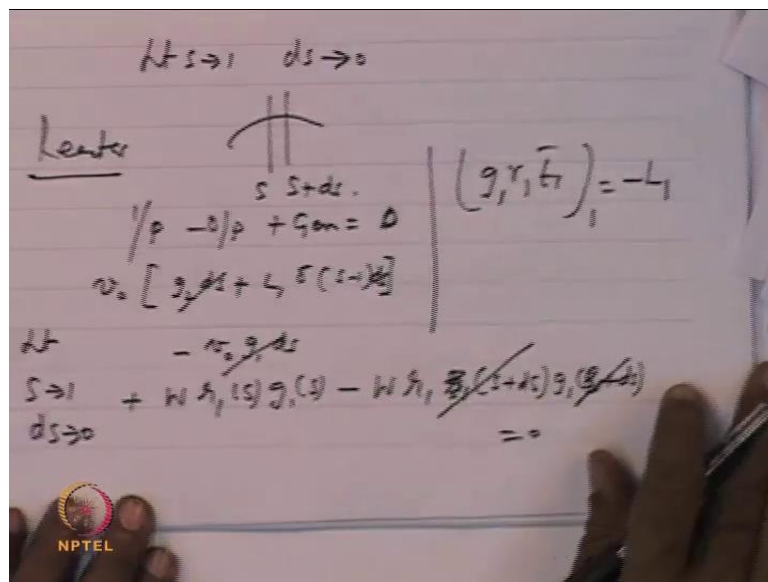 Lt s→1 ds→0
Reactor
s s+ds.
I/p - O/p + Gen = 0
v₀ [ g₁ds + L₁ δ(s-1)ds]
(g₁ r₁ t̄₁)₁ = -L₁
Lt - v₀ g₁ds
s→1 + W r₁(s) g₁(s) - W r₁ (s+ds) g₁(s+ds)
ds→0 = 0
NPTEL